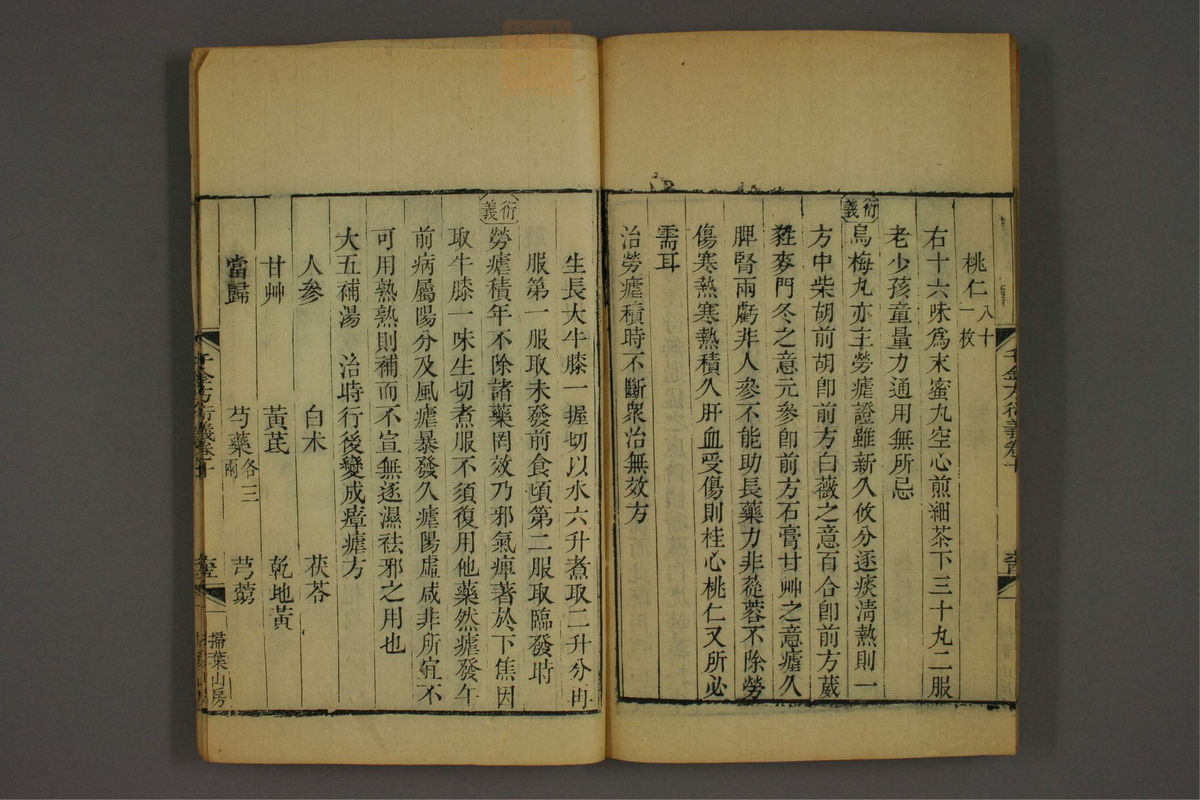 桃仁八十一枚
右十六味爲末蜜丸空心煎細茶下三十丸二服
老少孩童量力通用無所忌
衍義
烏梅丸亦主勞瘧證雖新久攸分逐痰淸熱則一
方中柴胡前胡卽前方白薇之意百合卽前方葳
蕤麥門冬之意元參卽前方石膏甘艸之意瘧久
脾腎兩虧非人參不能助長藥力非蓯蓉不除勞
傷寒熱寒熱積久肝血受傷則桂心桃仁又所必
需耳
治勞瘧積時不斷衆治無效方
千金方衍義卷十
生長大牛膝一握切以水六升煮取二升分再
服第一服取未發前食頃第二服取臨發時
衍義
勞瘧積年不除諸藥罔效乃邪氣痺著於下焦因
取牛膝一味生切煮服不須復用他藥然瘧發午
前病屬陽分及風瘧暴發久瘧陽虛咸非所宜不
可用熟熟則補而不宣無逐濕祛邪之用也
大五補湯 治時行後變成瘴瘧方
人參 白朮 茯苓
甘艸 黃芪 乾地黃
當歸 芍藥各三兩 芎藭
千金方衍義卷十
掃葉山房